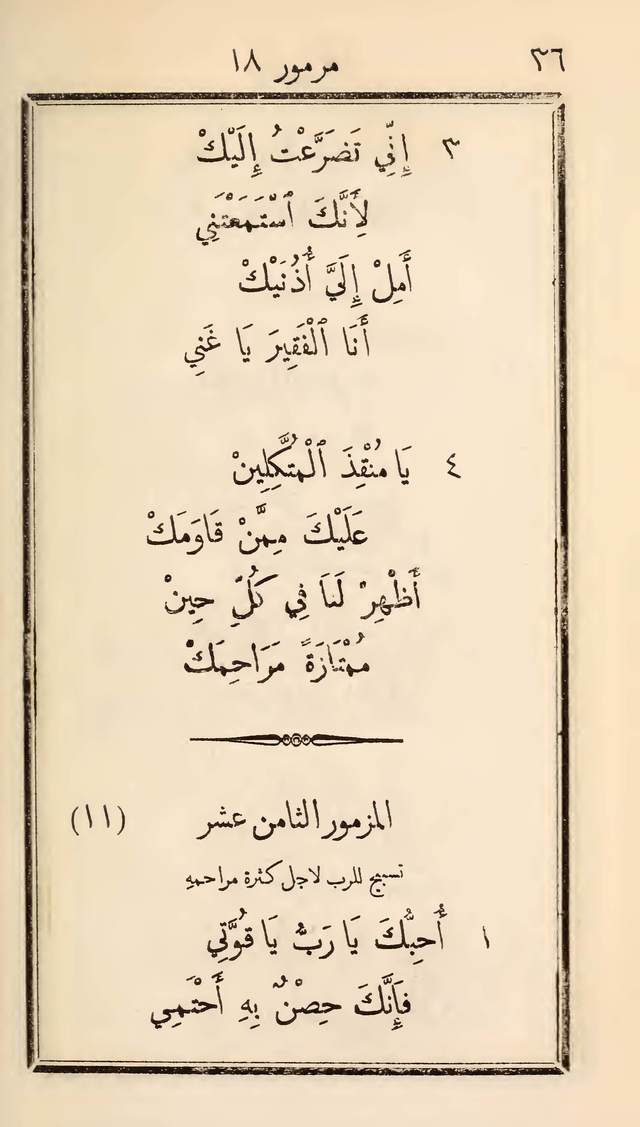 ٣٦ مرمور ١٨
٣ إِنِّي تَضَرَّعْتُ إِلَيْكْ
لِأَنَّكَ ٱسْتَمَعْتَنِي
أَمِلْ إِلَيَّ أُذُنَيْكْ
أَنَا ٱلْفَقِيرَ يَا غَنِي
٤ يَا مُنْقِذَ ٱلْمُتَّكِلِينْ
عَلَيْكَ مِمَّنْ قَاوَمَكْ
أَظْهِرْ لَنَا فِي كُلِّ حِينْ
مُمْتَازَةً مَرَاحِمَكْ
المزمور الثامن عشر (١١)
تسبيح للرب لاجل كثرة مراحمهِ
١ أُحِبُّكَ يَا رَبُّ يَا قُوَّتِي
فَإِنَّكَ حِصْنٌ بِهِ أَحْتَمِي